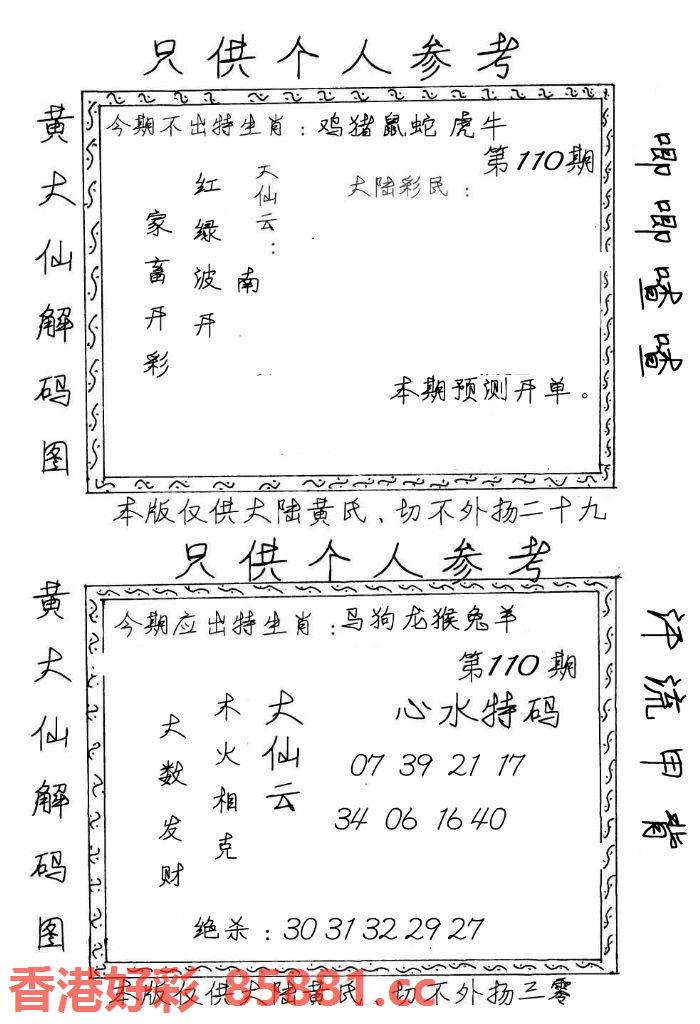 只供个人参考
黄大仙解码图
今期不出特生肖：鸡猪鼠蛇虎牛
第110期
大陆彩民：
大仙云：
南
红绿波开
家畜开彩
本期预测开单。
唧唧喳喳
本版仅供大陆黄氏、切不外扬二十九
只供个人参考
黄大仙解码图
今期应出特生肖：马狗龙猴兔羊
第110期
大仙云
木火相克
大数发财
心水特码
07 39 21 17
34 06 16 40
绝杀：30 31 32 29 27
汗流甲背
本版仅供大陆黄氏、切不外扬三零
香港好彩 85881.cc